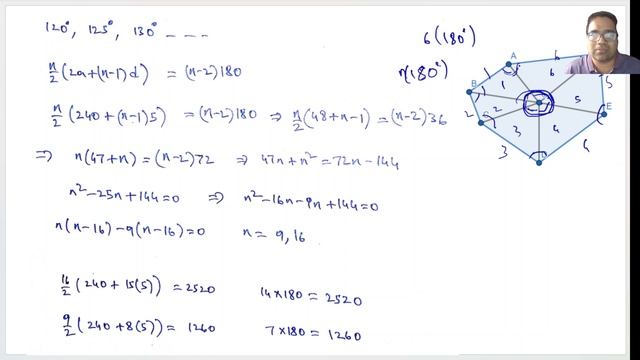 120°, 125°, 130° - - -
n/2 (2a+(n-1)d) = (n-2)180
n/2 (240+(n-1)5) = (n-2)180 ⇒ n/2 (48+n-1) = (n-2)36
⇒ n(47+n) = (n-2)72 ⇒ 47n+n² = 72n-144
n²-25n+144=0 ⇒ n²-16n-9n+144=0
n(n-16)-9(n-16)=0 n= 9,16
16/2 (240+15(5)) = 2520 14×180 = 2520
9/2 (240+8(5)) = 1260 7×180 = 1260
6(180°)
n(180°)
A
B
E
1
1
2
2
3
3
4
4
5
5
6
6